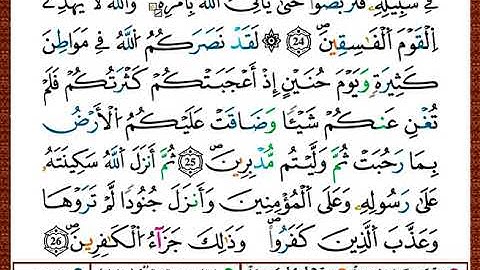 فِي سَبِيلِهِۦ فَتَرَبَّصُوا۟ حَتَّىٰ يَأْتِيَ ٱللَّهُ بِأَمْرِهِۦۗ وَٱللَّهُ لَا يَهْدِے
اِ۬لْقَوْمَ ٱلْفَٰسِقِينَۖ 24 ۞ لَقَدْ نَصَرَكُمُ ٱللَّهُ فِے مَوَاطِنَ
كَثِيرَةٖ وَيَوْمَ حُنَيْنٍ إِذْ أَعْجَبَتْكُمْ كَثْرَتُكُمْ فَلَمْ
تُغْنِ عَنكُمْ شَيْـٔٗا وَضَاقَتْ عَلَيْكُمُ ٱلْأَرْضُ
بِمَا رَحُبَتْ ثُمَّ وَلَّيْتُم مُّدْبِرِينَۖ 25 ثُمَّ أَنزَلَ ٱللَّهُ سَكِينَتَهُۥ
عَلَىٰ رَسُولِهِۦ وَعَلَى ٱلْمُؤْمِنِينَ وَأَنزَلَ جُنُودٗا لَّمْ تَرَوْهَا
وَعَذَّبَ ٱلَّذِينَ كَفَرُوا۟ۖ وَذَٰلِكَ جَزَآءُ ٱلْكَٰفِرِينَۖ 26